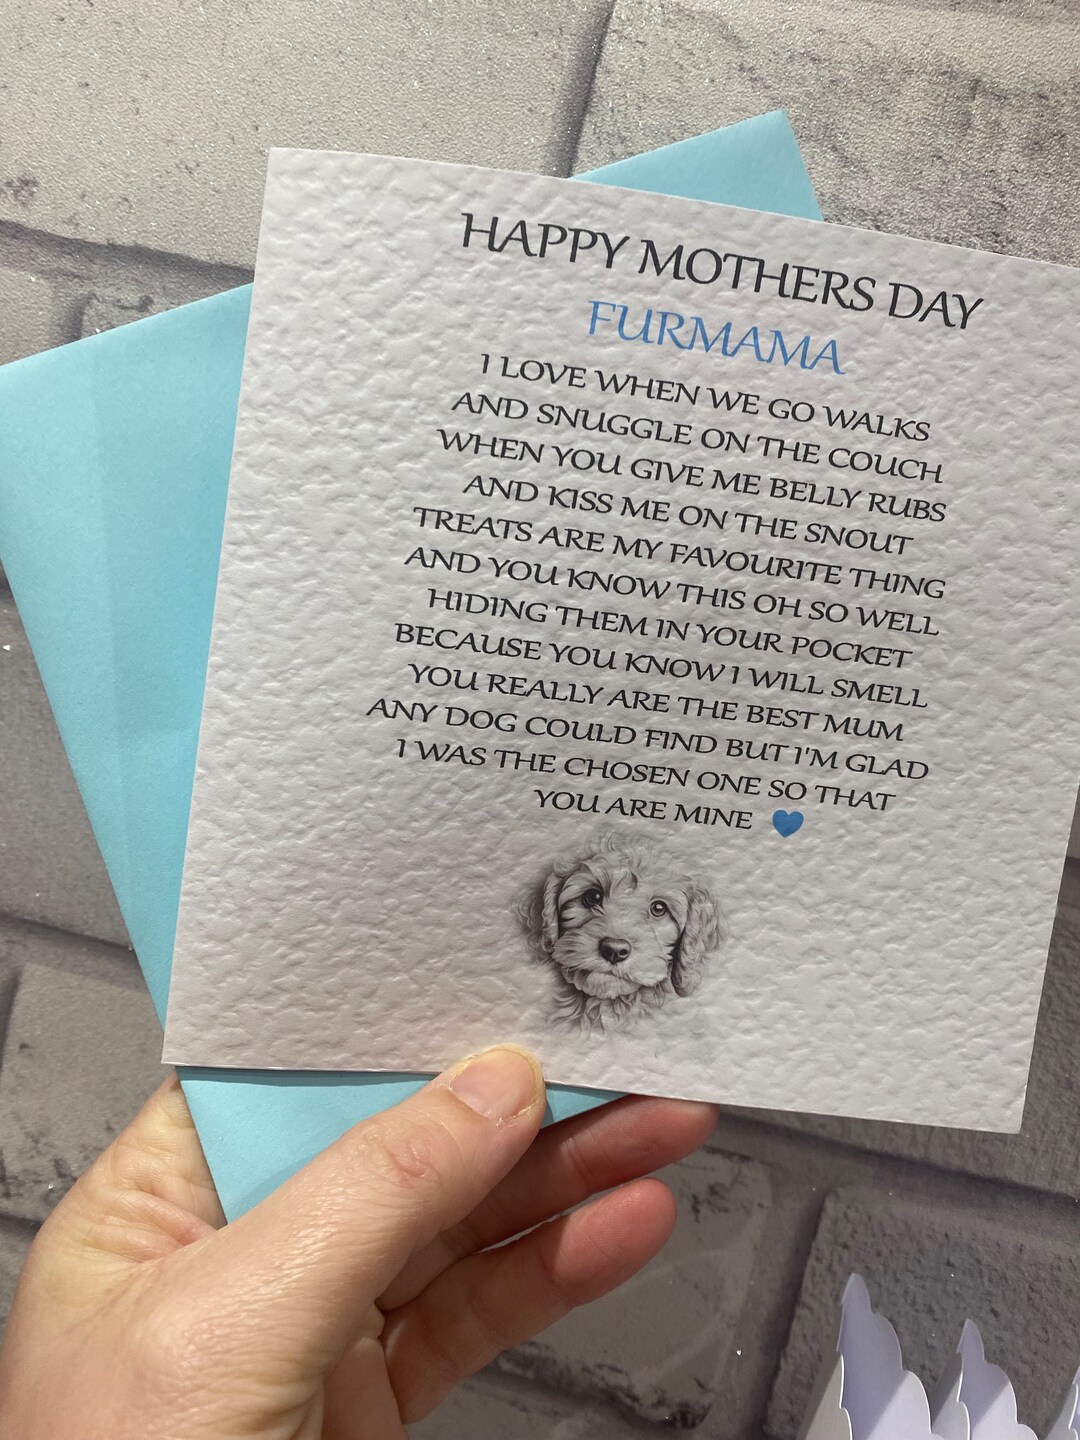 HAPPY MOTHERS DAY
FURMAMA
I LOVE WHEN WE GO WALKS
AND SNUGGLE ON THE COUCH
WHEN YOU GIVE ME BELLY RUBS
AND KISS ME ON THE SNOUT
TREATS ARE MY FAVOURITE THING
AND YOU KNOW THIS OH SO WELL
HIDING THEM IN YOUR POCKET
BECAUSE YOU KNOW I WILL SMELL
YOU REALLY ARE THE BEST MUM
ANY DOG COULD FIND BUT I'M GLAD
I WAS THE CHOSEN ONE SO THAT
YOU ARE MINE